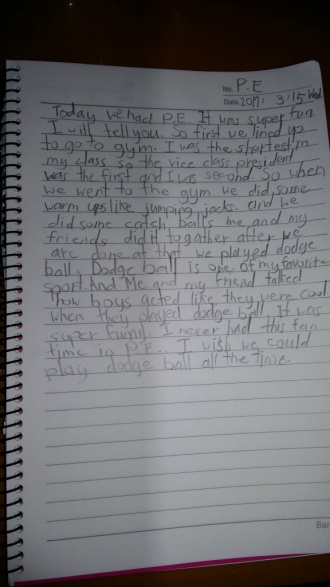 No. P.E
Date. 2017. 3.15 Wed
Today we had P.E. It was super fun
I will tell you. So first we lined up
to go to gym. I was the shortest in
my class so the vice class president
was the first and I was second. So when
we went to the gym we did some
warm ups like jumping jacks. and we
did some catch balls me and my
friends did it togather after we
are done at that we played dodge
ball. Dodge ball is one of my favorite
sport. And Me and my friend talked
how boys acted like they were cool
when they played dodge ball. It was
super funny. I never had this fun
time in P.E.. I wish we could
play dodge ball all the time.